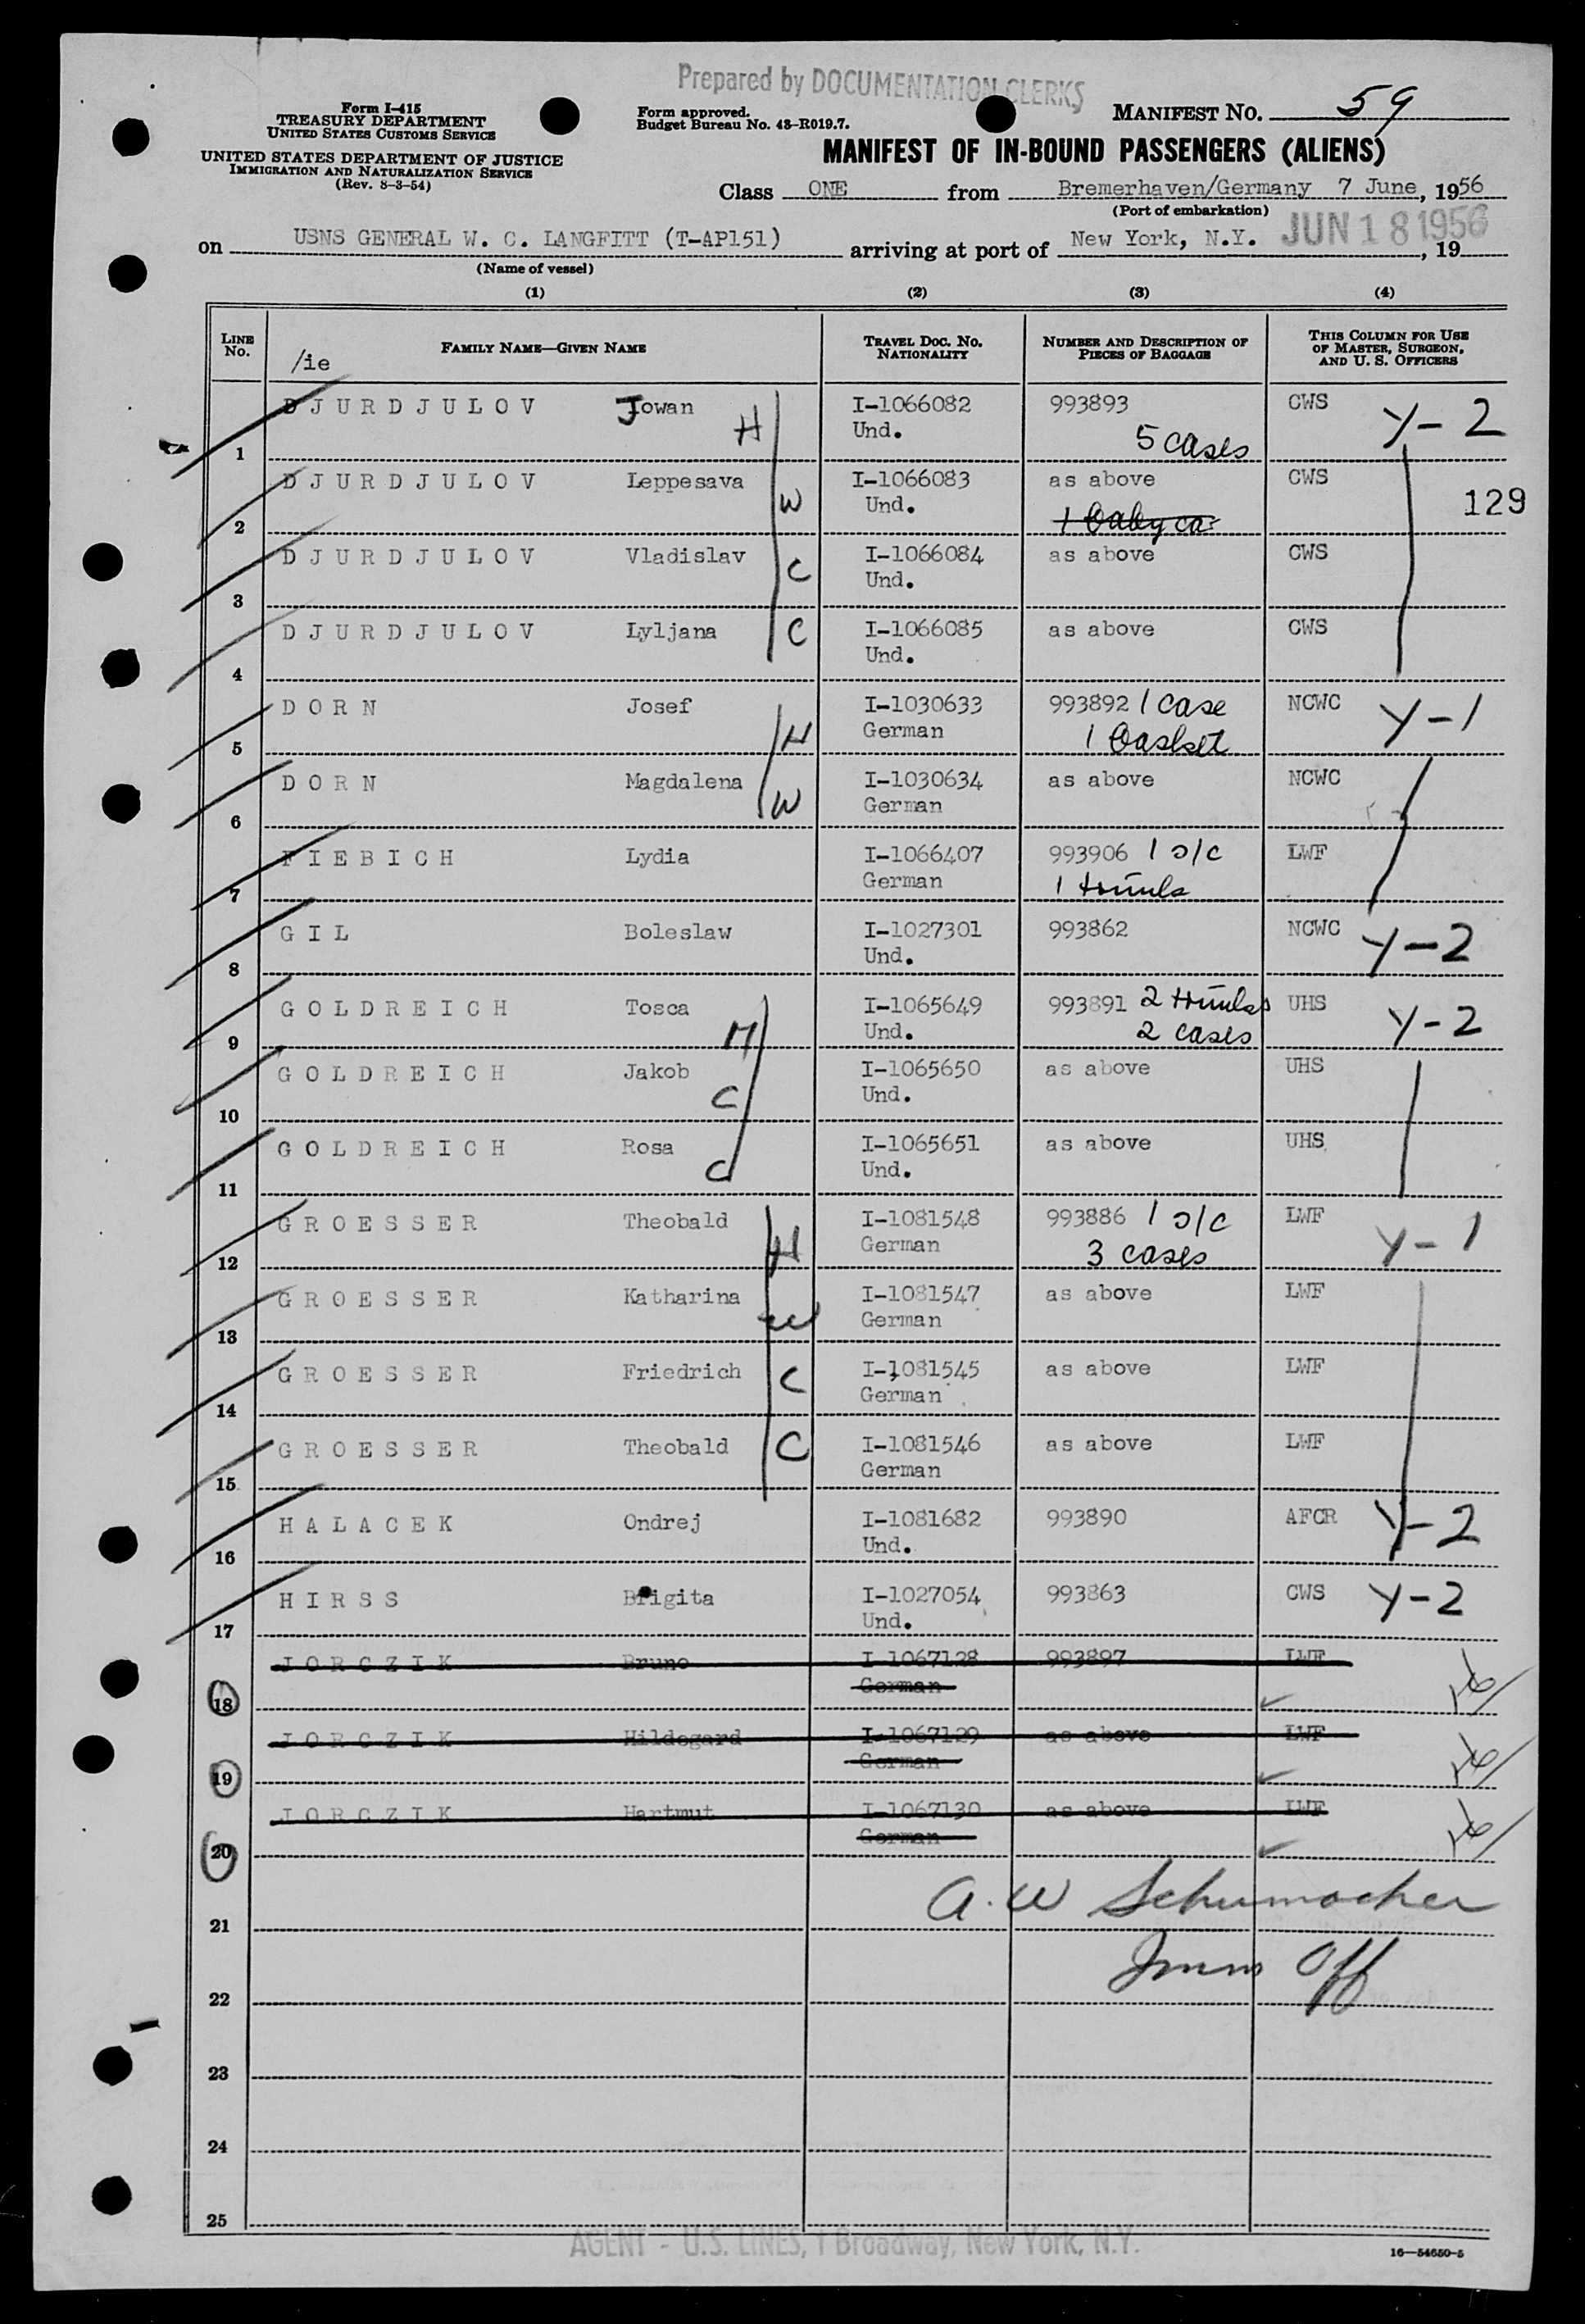 Prepared by DOCUMENTATION CLERKS
Form I-415
TREASURY DEPARTMENT
UNITED STATES CUSTOMS SERVICE
UNITED STATES DEPARTMENT OF JUSTICE
IMMIGRATION AND NATURALIZATION SERVICE
(Rev. 8-3-54)
Form approved.
Budget Bureau No. 43-R019.7.
MANIFEST NO. 59
MANIFEST OF IN-BOUND PASSENGERS (ALIENS)
Class ONE from Bremerhaven/Germany 7 June, 1956
(Port of embarkation)
on USNS GENERAL W. C. LANGFITT (T-AP151) arriving at port of New York, N.Y. JUN 18 1956, 19
(Name of vessel)
(1) (2) (3) (4)
LINE NO. /ie FAMILY NAME—GIVEN NAME TRAVEL DOC. NO. NATIONALITY NUMBER AND DESCRIPTION OF PIECES OF BAGGAGE THIS COLUMN FOR USE OF MASTER, SURGEON, AND U. S. OFFICERS
1 DJURDJULOV Jowan H I-1066082 Und. 993893 5 cases CWS Y-2
2 DJURDJULOV Leppesava W I-1066083 Und. as above 1 baby car CWS 129
3 DJURDJULOV Vladislav C I-1066084 Und. as above CWS
4 DJURDJULOV Lyljana C I-1066085 Und. as above CWS
5 DORN Josef H I-1030633 German 993892 1 case 1 basket NCWC Y-1
6 DORN Magdalena W I-1030634 German as above NCWC
7 FIEBICH Lydia I-1066407 German 993906 1 s/c 1 LWF
8 GIL Boleslaw I-1027301 Und. 993862 NCWC Y-2
9 GOLDREICH Tosca M I-1065649 Und. 993891 2 2 cases UHS Y-2
10 GOLDREICH Jakob C I-1065650 Und. as above UHS
11 GOLDREICH Rosa C I-1065651 Und. as above UHS
12 GROESSER Theobald H I-1081548 German 993886 1 s/c 3 cases LWF Y-1
13 GROESSER Katharina W I-1081547 German as above LWF
14 GROESSER Friedrich C I-1081545 German as above LWF
15 GROESSER Theobald C I-1081546 German as above LWF
16 HALACEK Ondrej I-1081682 Und. 993890 AFCR Y-2
17 HIRSS Brigita I-1027054 Und. 993863 CWS Y-2
18 JORCZIK Bruno I-1067128 German 993897 LWF
19 JORCZIK Hildegard I-1067129 German as above LWF
20 JORCZIK Hartmut I-1067130 German as above LWF
A. W Schumacher
21
Imm Off
22
23
24
25
AGENT - U.S. LINES, 1 Broadway, New York, N.Y.
16—54650-5